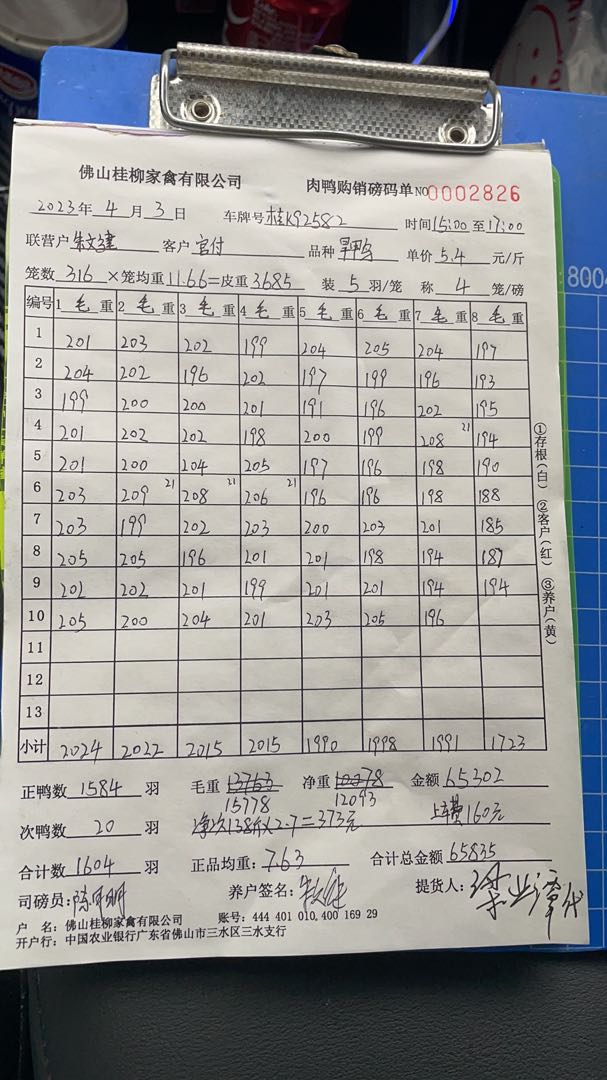 佛山桂柳家禽有限公司 肉鸭购销磅码单 NO 0002826
2023年 4 月 3 日 车牌号 桂K92582 时间 15:00 至 17:00
联营户 朱文建 客户 官付 品种 旱鸭 单价 5.4 元/斤
笼数 316 ×笼均重 11.66=皮重 3685 装 5 羽/笼 称 4 笼/磅
编号 1 毛 重 2 毛 重 3 毛 重 4 毛 重 5 毛 重 6 毛 重 7 毛 重 8 毛 重
1 201 203 202 199 204 205 204 197
2 204 202 196 202 197 199 196 193
3 199 200 200 201 191 196 202 195
4 201 202 202 198 200 199 208 21 194
5 201 200 204 205 197 196 198 190
6 203 209 21 208 21 206 21 196 196 198 188
7 203 199 202 203 200 203 201 185
8 205 205 196 201 201 198 194 187
9 202 202 201 199 201 201 194 194
10 205 200 204 201 203 205 196
11
12
13
小计 2024 2022 2015 2015 1990 1998 1991 1723
①存根(白) ②客户(红) ③养户(黄)
正鸭数 1584 羽 毛重 13763 净重 10078 金额 65302
15778 12093
次鸭数 20 羽 净次138斤×2.7=373元 上车费160元
合计数 1604 羽 正品均重: 7.63 合计总金额 65835
司磅员: 养户签名: 提货人:
户 名: 佛山桂柳家禽有限公司 账号: 444 401 010,400 169 29
开户行: 中国农业银行广东省佛山市三水区三水支行